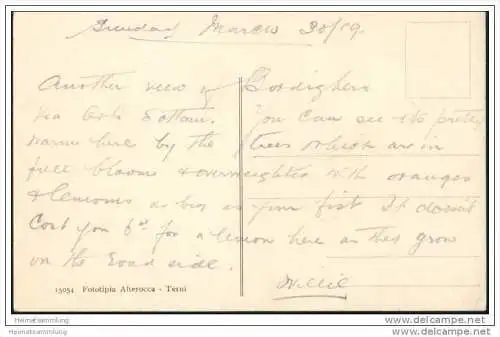 Sunday March 30/19.
Another view of Bordighera
You can see its pretty
warm here by the trees which are in
full blooms & overweighted with oranges
& lemons as big as your fist It doesn't
Cost you 6d for a lemon here as they grow
on the road side.
Willie
13054 Fototipia Alterocca - Terni
Heimatsammlung
www.heimatsammlung.de
Heimatsammlung
www.heimatsammlung.de